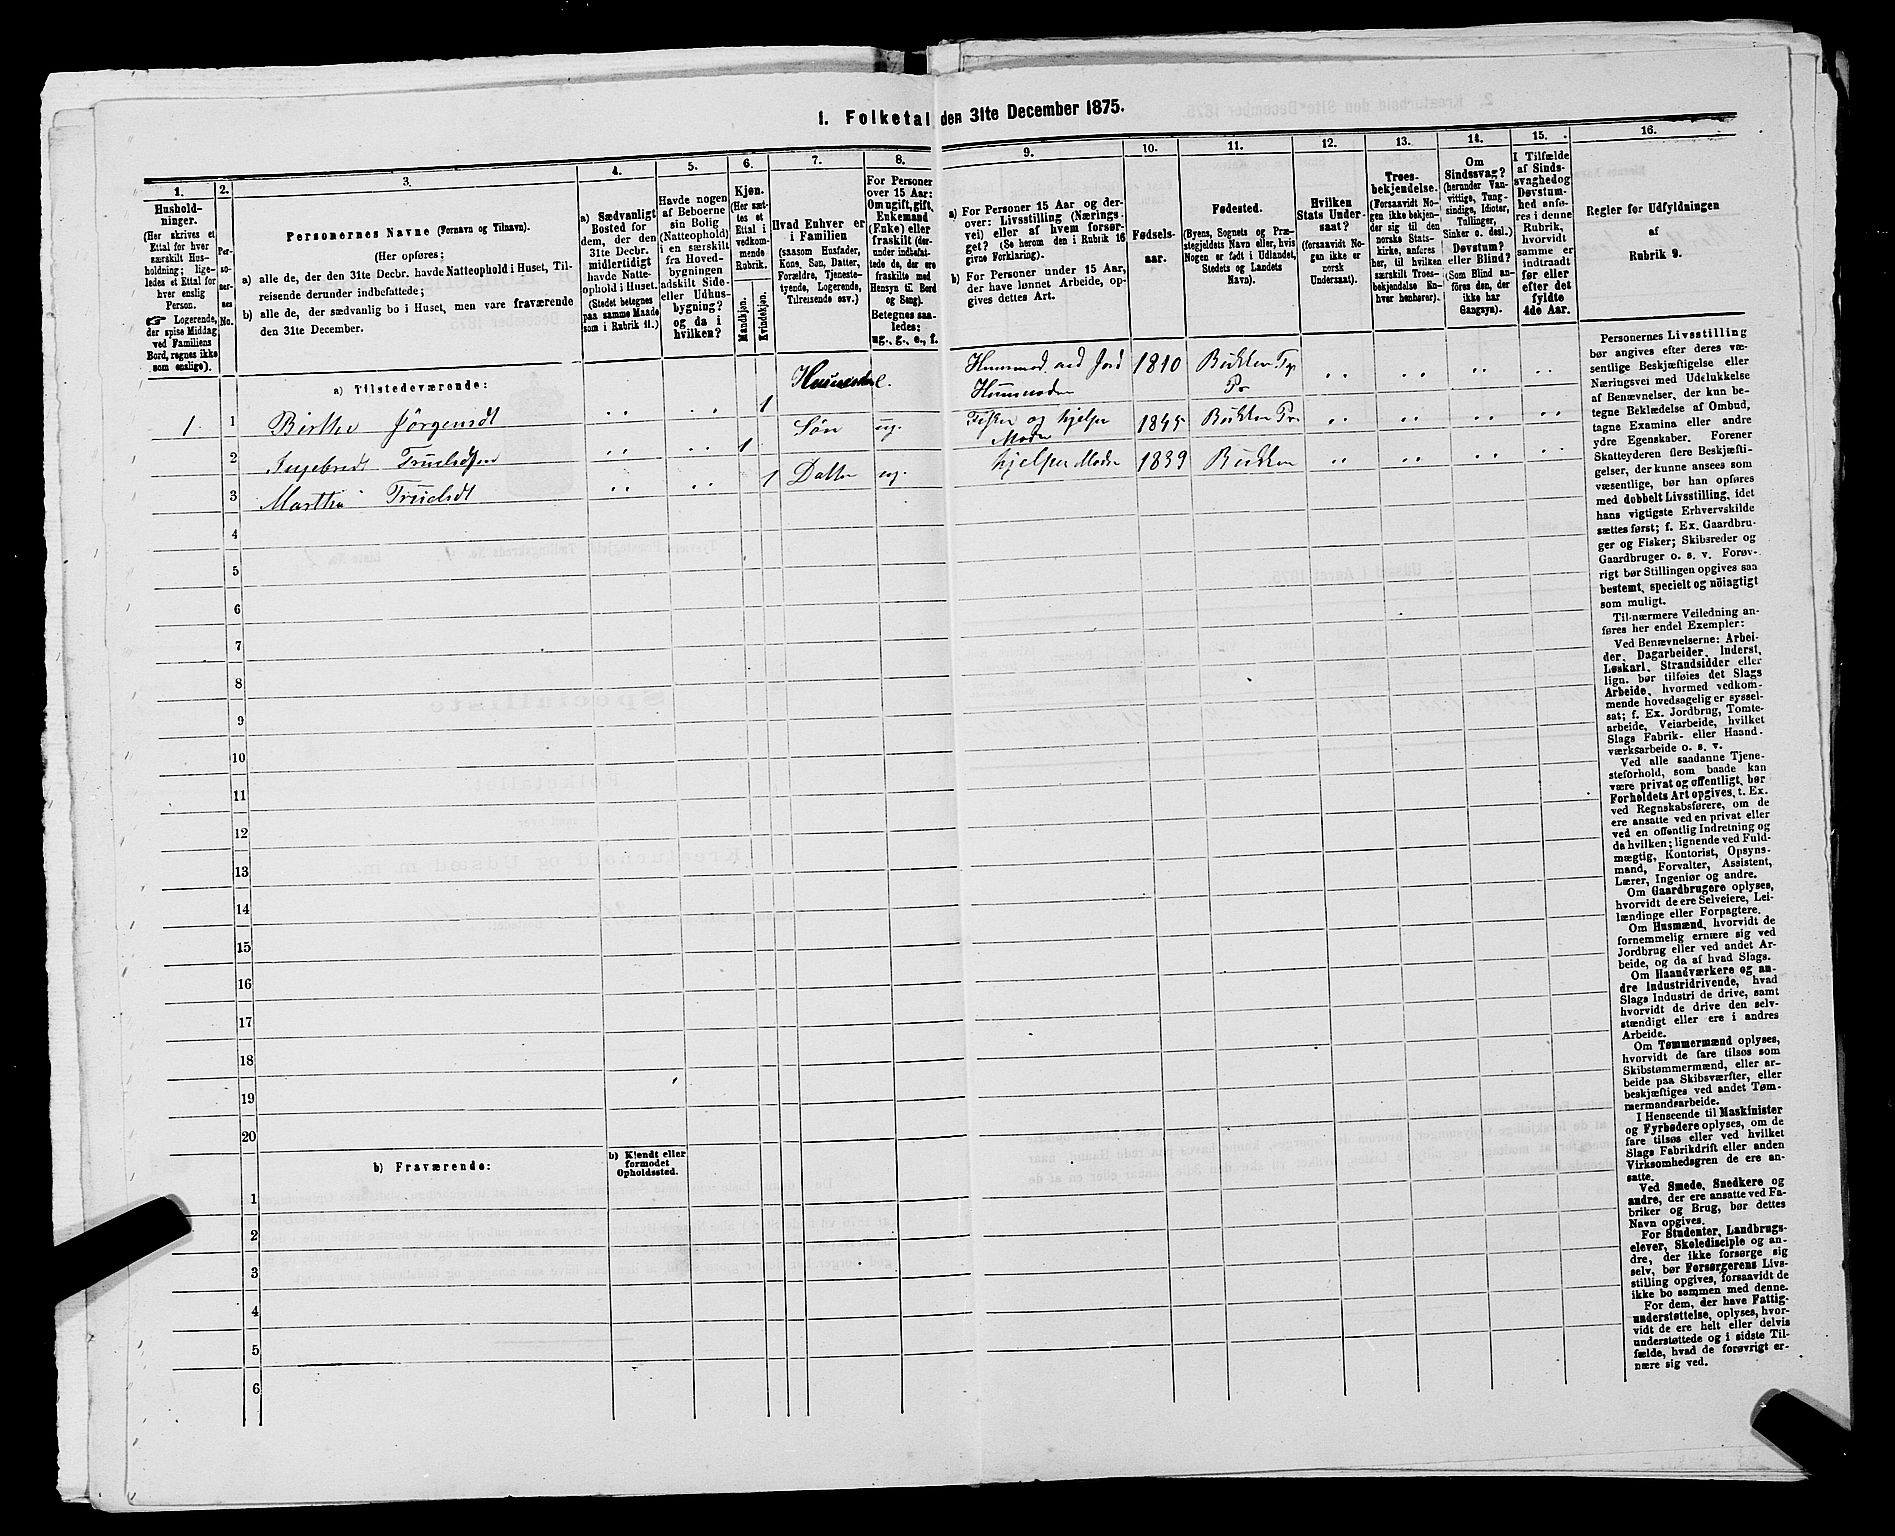 1. Folketal den 31te December 1875.
1.
Hushold-
ninger.
(Her skrives et
Ettal for hver
særskilt Hus-
holdning; lige-
ledes et Ettal for
hver enslig
Person.
☞ Logerende,
der spise Middag
ved Familiens
Bord, regnes ikke
som enslige).
2.
Per-
so-
ner-
nes
No.
3.
Personernes Navne (Fornavn og Tilnavn).
(Her opføres:
a) alle de, der den 31te Decbr. havde Natteophold i Huset, Til-
reisende derunder indbefattede;
b) alle de, der sædvanlig bo i Huset, men vare fraværende
den 31te December.
4.
a) Sædvanligt
Bosted for
dem, der den
31te Decbr.
midlertidigt
havde Natte-
ophold i Huset.
(Stedet betegnes
paa samme Maade
som i Rubrik 11.)
5.
Havde nogen
af Beboerne
sin Bolig
(Natteophold)
i en særskilt
fra Hoved-
bygningen
adskilt Side-
eller Udhus-
bygning?
og da i
hvilken?
6.
Kjøn.
(Her sæt-
tes et
Ettal i
vedkom-
mende
Rubrik.
Mandkjøn.
Kvindekjøn.
7.
Hvad Enhver er
i Familien
(saasom Husfader,
Kone, Søn, Datter,
Forældre, Tjeneste-
tyende, Logerende,
Tilreisende osv.)
8.
For Personer
over 15 Aar:
Om ugift, gift,
Enkemand
(Enke) eller
fraskilt (der-
under indbefat-
tede de, der ere
fraskilte med
Hensyn til Bord
og Seng).
Betegnes saa-
ledes:
ug., g., e., f.
9.
a) For Personer 15 Aar og der-
over: Livsstilling (Nærings-
vei) eller af hvem forsør-
get? (Se herom den i Rubrik 16
givne Forklaring).
b) For Personer under 15 Aar,
der have lønnet Arbeide, op-
gives dettes Art.
10.
Fødsels-
aar.
11.
Fødested.
(Byens, Sognets og Præ-
stegjeldets Navn eller, hvis
Nogen er født i Udlandet,
Stedets og Landets
Navn).
12.
Hvilken
Stats Under-
saat?
(forsaavidt No-
gen ikke er
norsk
Undersaat).
13.
Troes-
bekjendelse.
(Forsaavidt No-
gen ikke bekjen-
der sig til den
norske Stats-
kirke, anføres
her, til hvilken
særskilt Troes-
bekjendelse En-
hver henhører).
14.
Om
Sindssvag?
(herunder Van-
vittige, Tung-
sindige, Idioter,
Tullinger,
Sinker o. desl.)
Døvstum?
eller Blind?
(Som Blind an-
føres den, der
ikke har
Gangsyn).
15.
I Tilfælde
af Sinds-
svaghed og
Døvstum-
hed anfø-
res i denne
Rubrik,
hvorvidt
samme er
indtraadt
før eller
efter det
fyldte
4de Aar.
16.
Regler før Udfyldningen
af
Rubrik 9.
a) Tilstedeværende:
1 1 Birthe Jørgensdt 1 e. Huusmod. ved Jord 1810 Bukken
Pr
2 Ingebret Truelsen 1 Søn ug. Fisker og hjelper 1845 Bukken Pr.
Moder
3 Martha Truelsdt 1 Datter ug. hjelper Moder 1839 Bukken
4
5
6
7
8
9
10
11
12
13
14
15
16
17
18
19
20
b) Fraværende:
b) Kjendt eller
formodet
Opholdssted.
1
2
3
4
5
6
Personernes Livsstilling
bør angives efter deres væ-
sentlige Beskjæftigelse eller
Næringsvei med Udelukkelse
af Benævnelser, der kun be-
tegne Beklædelse af Ombud,
tagne Examina eller andre
ydre Egenskaber. Forener
Skatteyderen flere Beskjæfti-
gelser, der kunne ansees som
væsentlige, bør han opføres
med dobbelt Livsstilling, idet
hans vigtigste Erhvervskilde
sættes først; f. Ex. Gaardbru-
ger og Fisker; Skibsreder og
Gaardbruger o. s. v. Forøv-
rigt bør Stillingen opgives saa
bestemt, specielt og nöiagtigt
som muligt.
Til nærmere Veiledning an-
føres her endel Exempler:
Ved Benævnelserne: Arbei-
der, Dagarbeider, Inderst,
Løskarl, Strandsidder eller
lign. bør tilføies det Slags
Arbeide, hvormed vedkom-
mende hovedsagelig er syssel-
sat; f. Ex. Jordbrug, Tomte-
arbeide, Veiarbeide, hvilket
Slags Fabrik- eller Haand-
værksarbeide o. s. v.
Ved alle saadanne Tjene-
steforhold, som baade kan
være privat og offentligt, bør
Forholdets Art opgives, t. Ex.
ved Regnskabsførere, om de
ere ansatte ved en privat eller
ved en offentlig Indretning og
da hvilken; lignende ved Fuld-
mægtig, Kontorist, Opsyns-
mand, Forvalter, Assistent,
Lærer, Ingeniør og andre.
Om Gaardbrugere oplyses,
hvorvidt de ere Selveiere, Lei-
lændinge eller Forpagtere.
Om Husmænd, hvorvidt de
fornemmelig ernære sig ved
Jordbrug eller ved andet Ar-
beide, og da af hvad Slags.
Om Haandværkere og an-
dre Industridrivende, hvad
Slags Industri de drive, samt
hvorvidt de drive den selv-
stændigt eller ere i andres
Arbeide.
Om Tømmermænd oplyses,
hvorvidt de fare tilsøs som
Skibstømmermænd, eller ar-
beide paa Skibsværfter, eller
beskjæftiges ved andet Tøm-
mermandsarbeide.
I Henseende til Maskinister
og Fyrbødere oplyses, om de
fare tilsøs eller ved hvilket
Slags Fabrikdrift eller anden
Virksomhedsgren de ere an-
satte.
Ved Smede, Snedkere og
andre, der ere ansatte ved Fa-
briker og Brug, bør dettes
Navn opgives.
For Studenter, Landbrugs-
elever, Skoledisciple og an-
dre, der ikke forsørge sig
selv, bør Forsørgerens Livs-
stilling opgives, forsaavidt de
ikke bo sammen med denne.
For dem, der have Fattig-
understøttelse, oplyses, hvor-
vidt de ere helt eller delvis
understøttede og i sidste Til-
fælde, hvad de forøvrigt er-
nære sig ved.